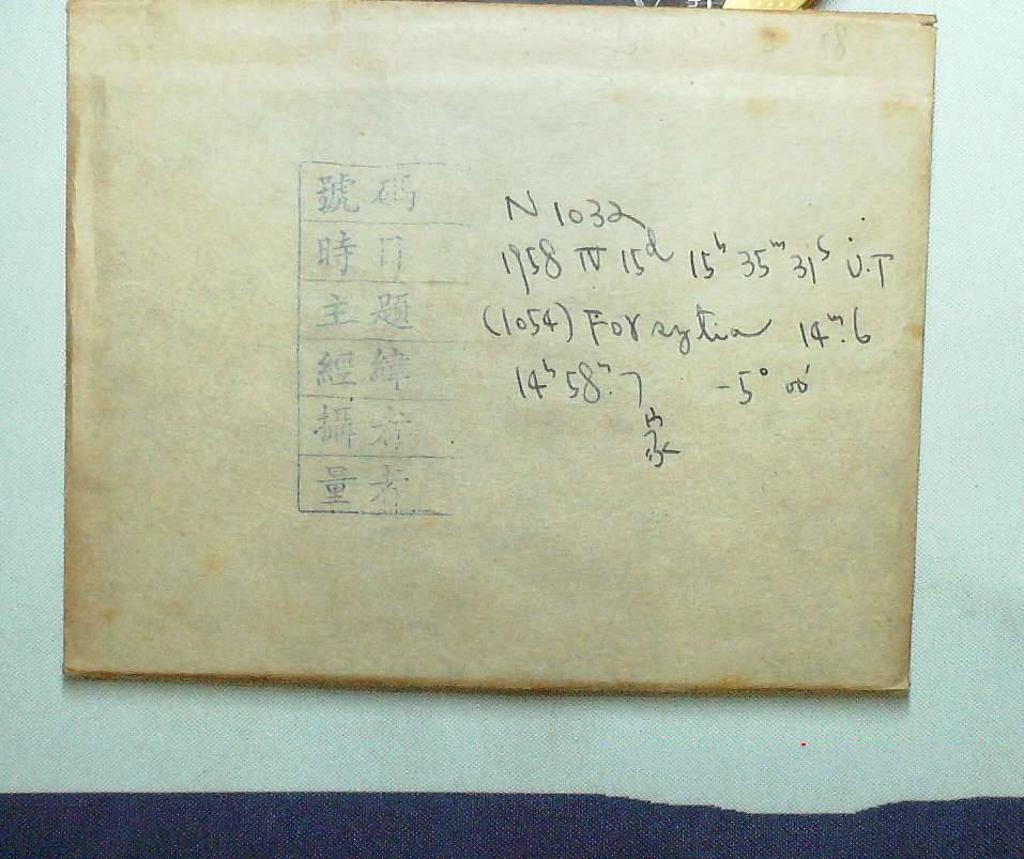 號碼 N 1032
時日 1958 IV 15ᵈ 15ʰ 35ᵐ 31ˢ U.T
主題 (1054) Forsytia 14ᵐ.6
經緯 14ʰ 58ᵐ.7 -5° 00'
攝者 家
量者